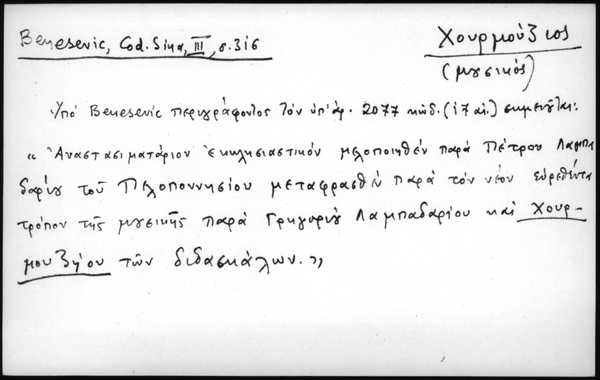 Benesevic, Cod. Sina, III, σ. 316
Χουρμούζιος
(μουσικός)
Ὑπό Benesevic περιγράφοντος τόν ὑπ' ἀρ. 2077 κώδ. (17 αἰ.) σημειοῦται:
"Ἀναστασιματάριον ἐκκλησιαστικόν μελοποιηθέν παρά Πέτρου Λαμπα
δαρίου τοῦ Πελοποννησίου μεταφρασθέν παρά τόν νέον εὑρεθέντα
τρόπον τῆς μουσικῆς παρά Γρηγορίου Λαμπαδαρίου καί Χουρ-
μουζίου τῶν διδασκάλων."